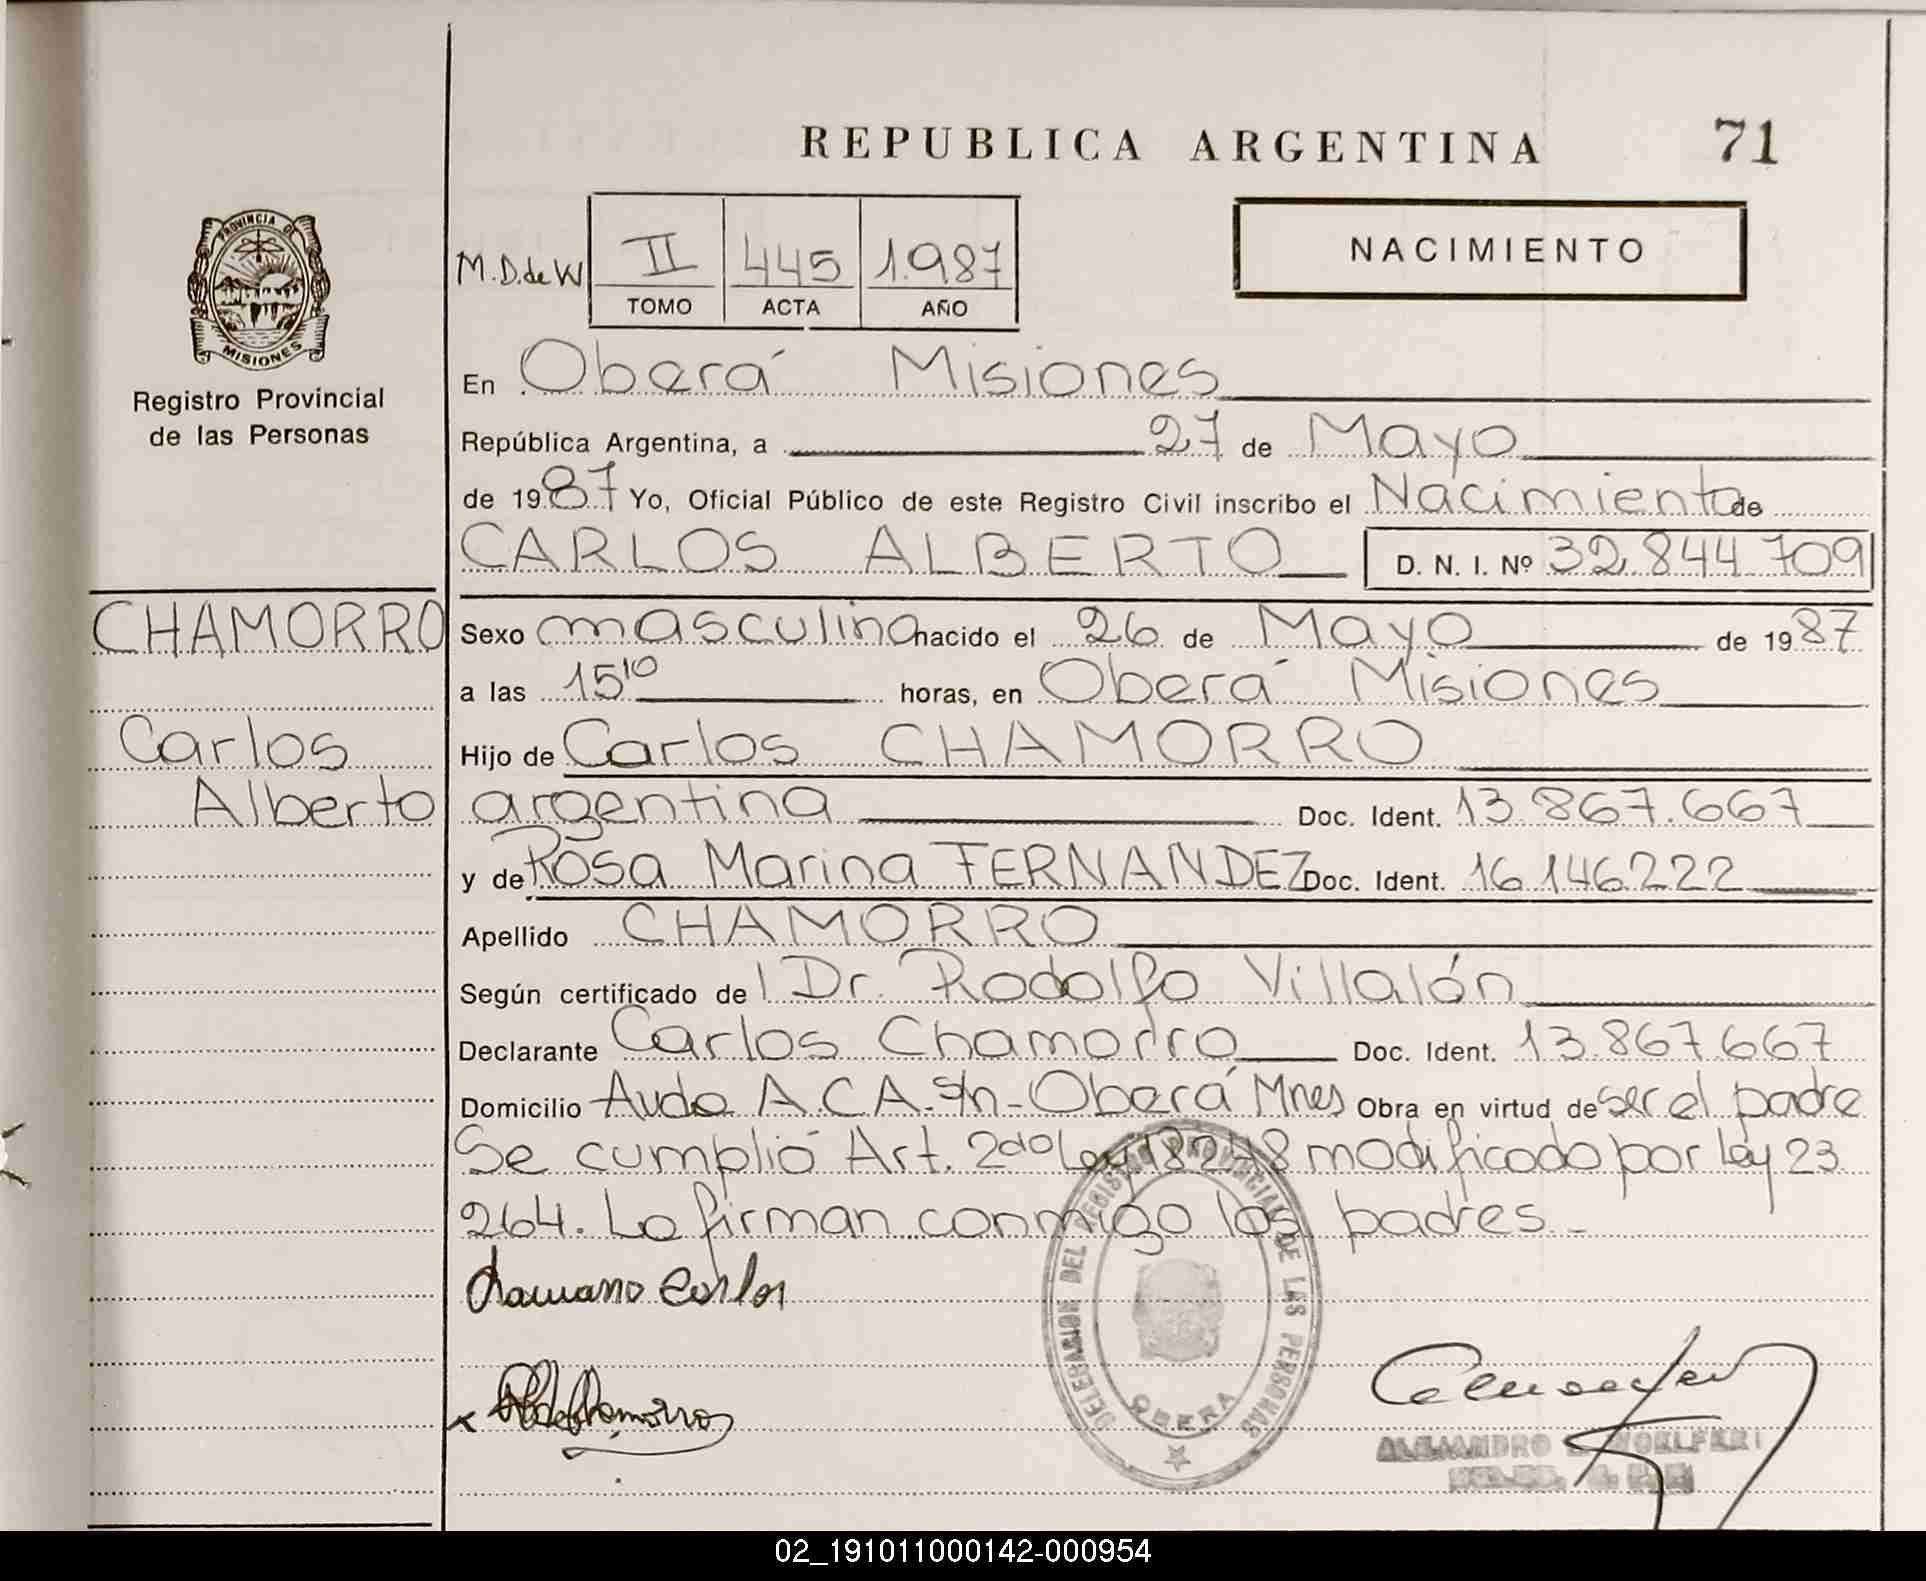 REPUBLICA ARGENTINA
71
PROVINCIA DE
MISIONES
Registro Provincial
de las Personas
M.D.de W
II
445
1.987
TOMO
ACTA
AÑO
NACIMIENTO
En Oberá Misiones
República Argentina, a 27 de Mayo
de 1987 Yo, Oficial Público de este Registro Civil inscribo el Nacimiento de
CARLOS ALBERTO D. N. I. Nº 32.844.709
CHAMORRO
Carlos
Alberto
Sexo masculino nacido el 26 de Mayo de 1987
a las 15¹⁰ horas, en Oberá Misiones
Hijo de Carlos CHAMORRO
argentina Doc. Ident. 13.867.667
y de Rosa Marina FERNANDEZ Doc. Ident. 16.146.222
Apellido CHAMORRO
Según certificado del Dr. Rodolfo Villalón
Declarante Carlos Chamorro Doc. Ident. 13.867.667
Domicilio Avda A.C.A. S/n - Oberá Mnes Obra en virtud de ser el padre
Se cumplió Art. 2do Ley 18248 modificado por Ley 23
264. Lo firman conmigo los padres.-
Carlos
DELEGACION DEL REGISTRO PROVINCIAL DE LAS PERSONAS
OBERA
ALEJANDRO
02_191011000142-000954